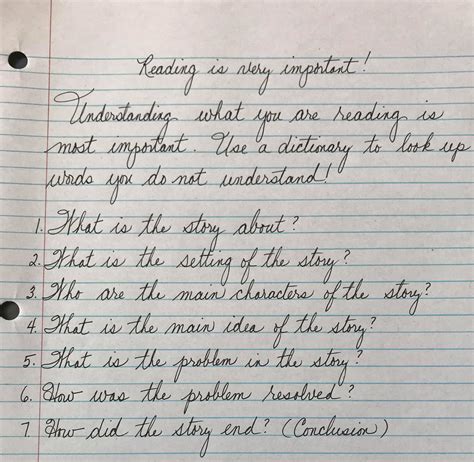 Reading is very important!
Understanding what you are reading is
most important. Use a dictionary to look up
words you do not understand!
1. What is the story about?
2. What is the setting of the story?
3. Who are the main characters of the story?
4. What is the main idea of the story?
5. What is the problem in the story?
6. How was the problem resolved?
7. How did the story end? (Conclusion)